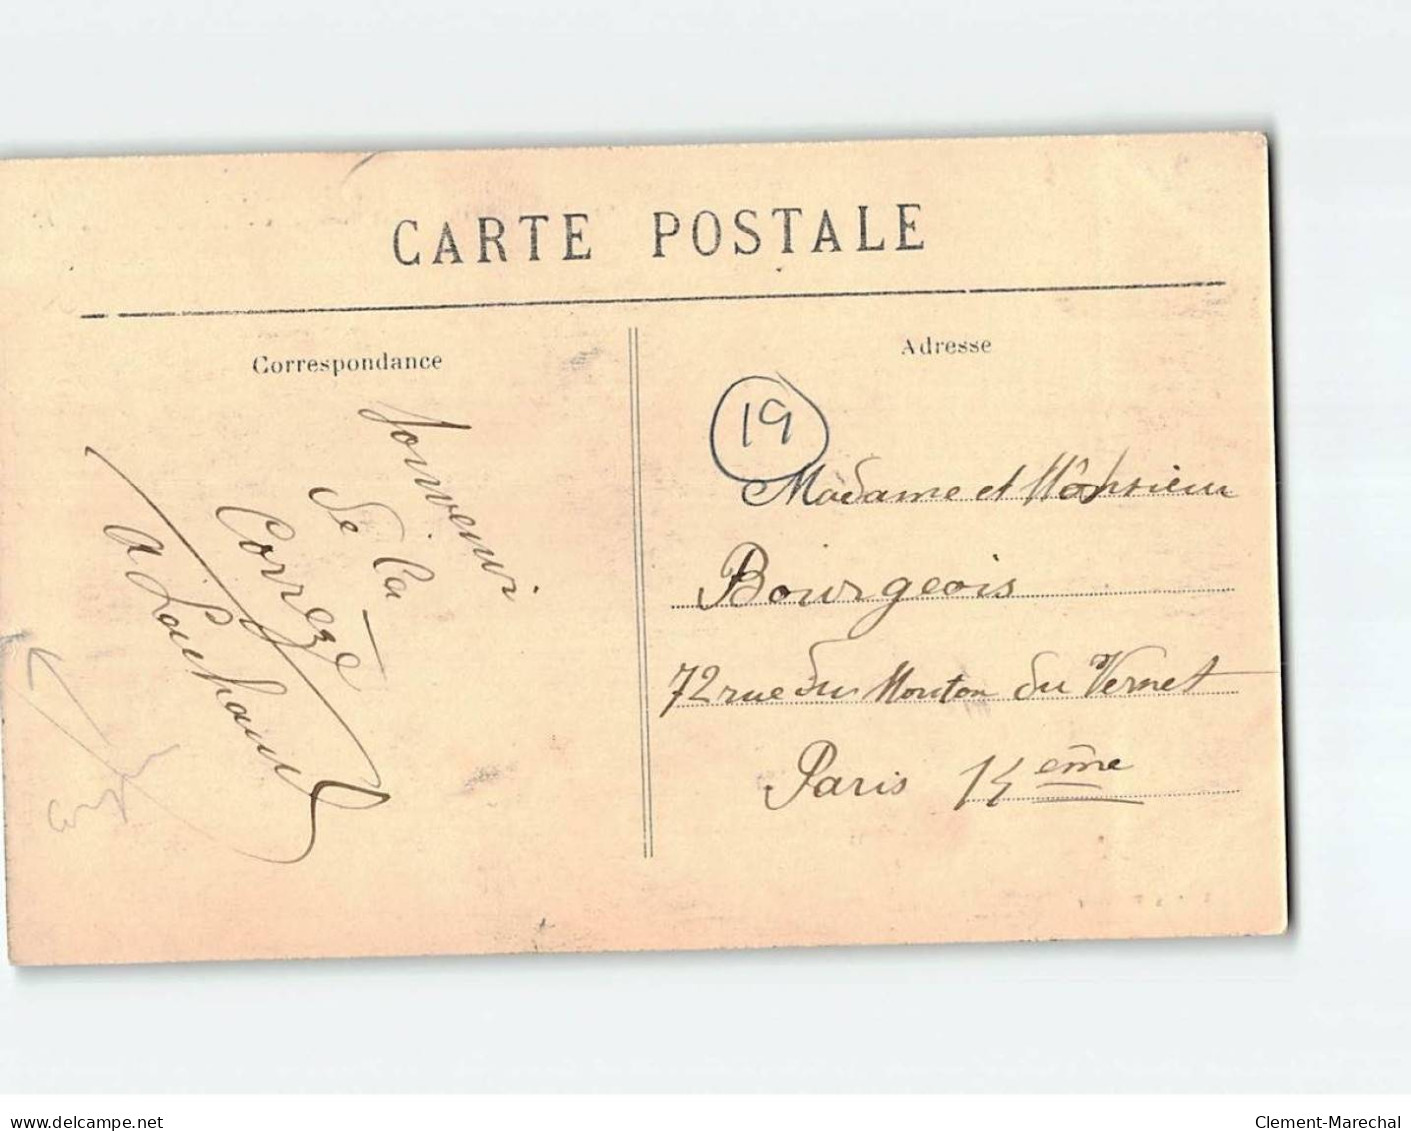 CARTE POSTALE
Correspondance
Souvenir
de la
Corrèze
Adresse
19
Madame et Monsieur
Bourgeois
72 rue du Mouton du Vernet
Paris 14 eme
delcampe.net
Clement-Marechal